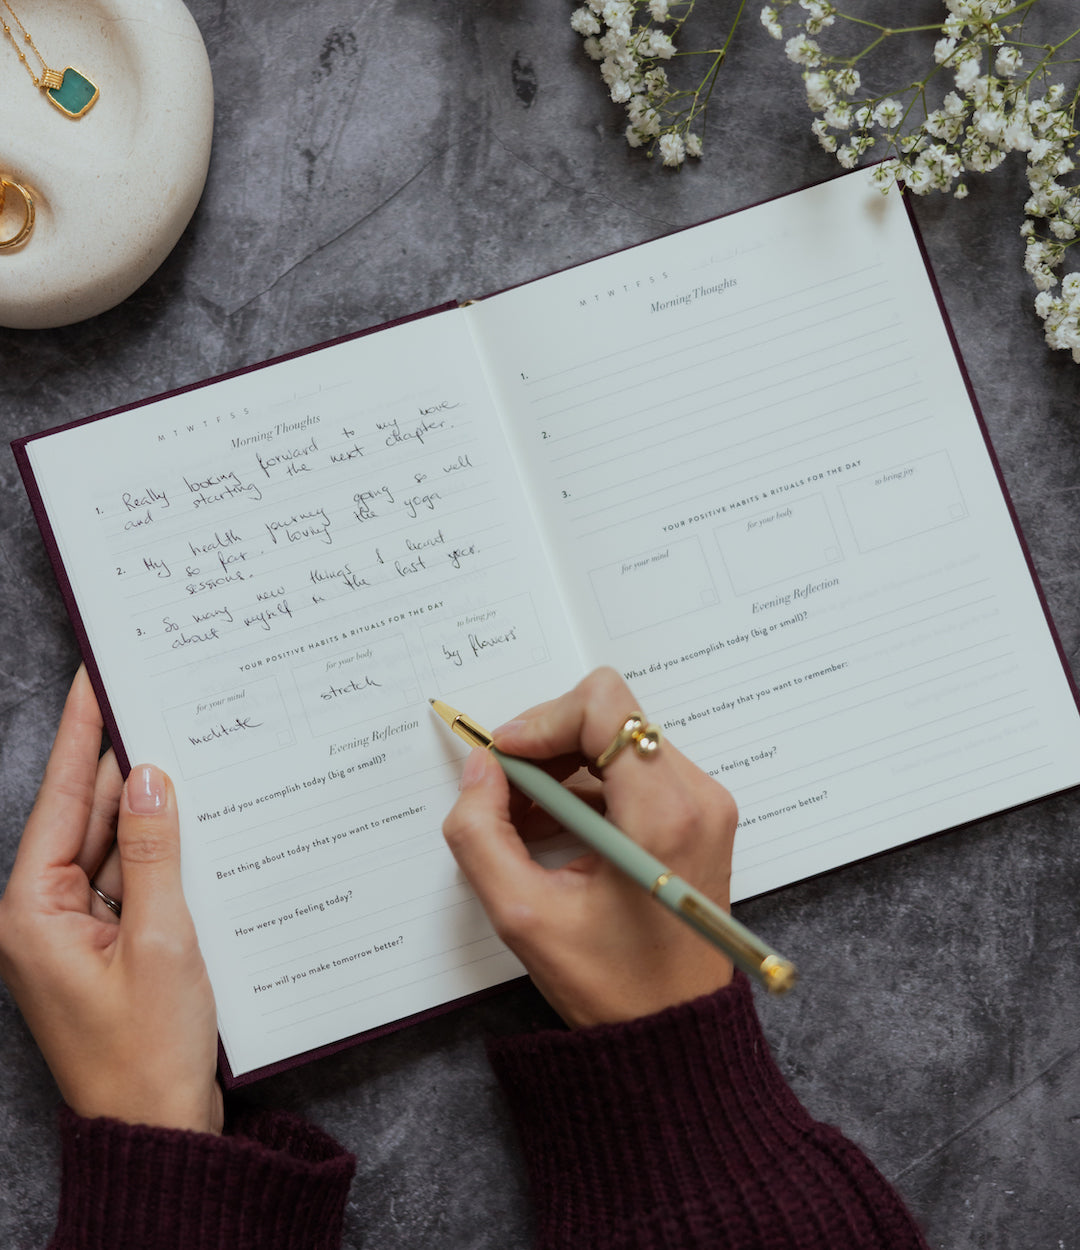 M T W T F S S
Morning Thoughts
1. Really looking forward to my move
and starting the next chapter.
2. My health journey going so well
so far. loving the yoga
sessions.
3. So many new things I learnt
about myself in the last year.
YOUR POSITIVE HABITS & RITUALS FOR THE DAY
for your mind
meditate
for your body
stretch
to bring joy
by flowers
Evening Reflection
What did you accomplish today (big or small)?
Best thing about today that you want to remember:
How were you feeling today?
How will you make tomorrow better?
M T W T F S S
Morning Thoughts
1.
2.
3.
YOUR POSITIVE HABITS & RITUALS FOR THE DAY
for your mind
for your body
to bring joy
Evening Reflection
What did you accomplish today (big or small)?
thing about today that you want to remember:
you feeling today?
make tomorrow better?